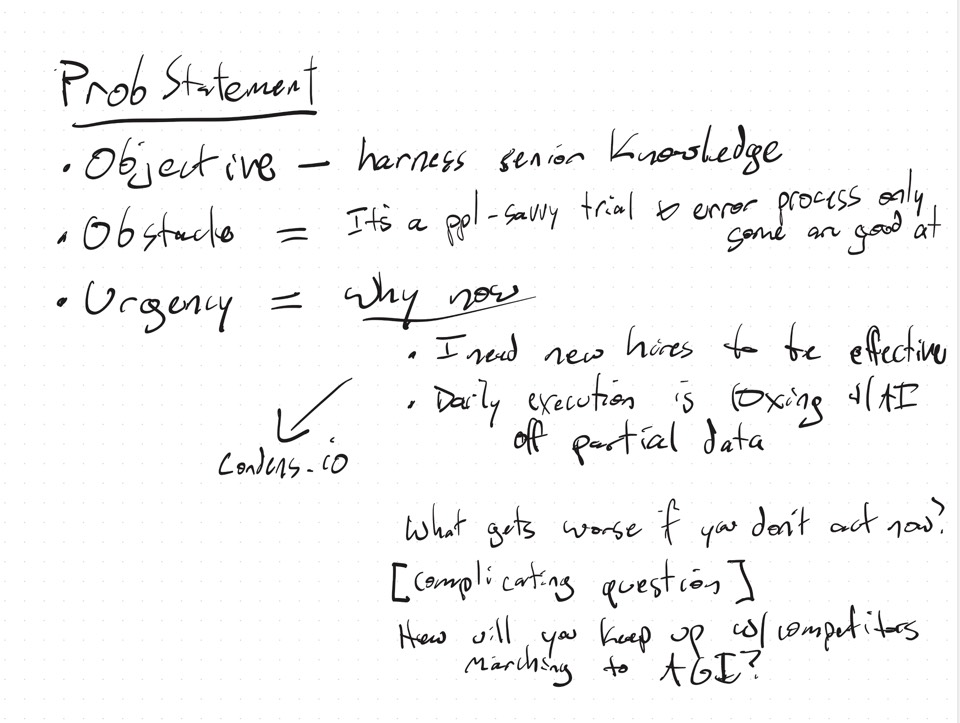 Prob Statement
• Objective – harness senior Knowledge
• Obstacle = It's a ppl-savvy trial & error process only
some are good at
• Urgency = Why now
• I need new hires to be effective
• Daily execution is 10xing w/AI
off partial data
Condens.io
What gets worse if you don't act now?
[complicating question]
How will you keep up w/competitors
marching to AGI?